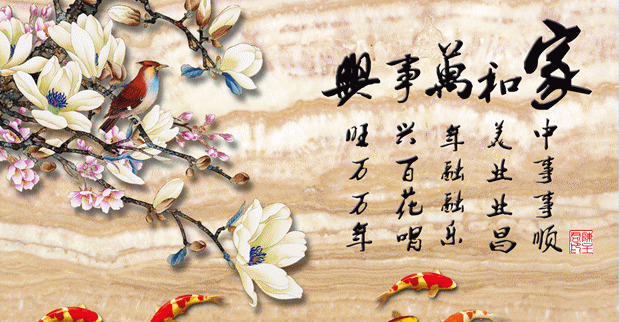 家和萬事興
中事事顺
美业业昌
年融融乐
兴百花唱
旺万万年